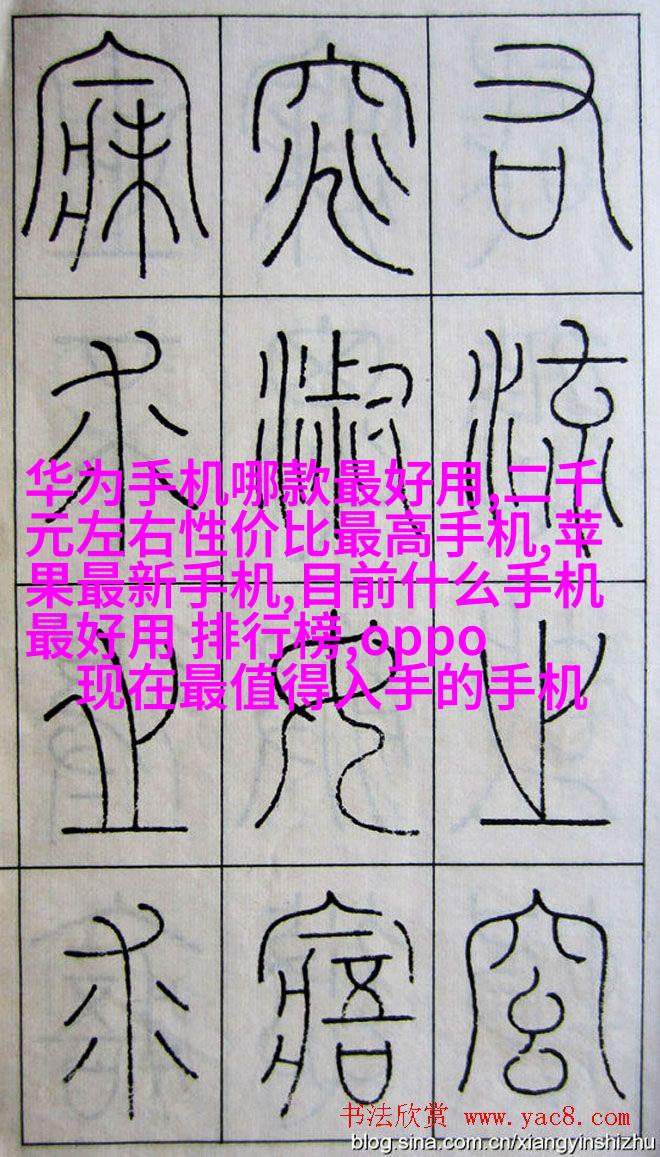 右流之窈
窕淑女寤
寐求之求
华为手机哪款最好用,二千
元左右性价比最高手机,苹
果最新手机,目前什么手机
最好用 排行榜,oppo
现在最值得入手的手机
书法欣赏 www.yac8.com
blog.sina.com.cn/xiangyinshizhu